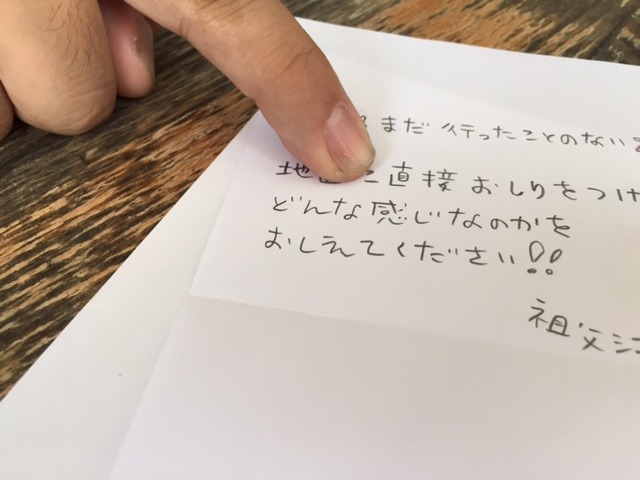 まだ行ったことのない
地 に直接おしりをつけ
どんな感じなのかを
おしえてください!!
祖父江